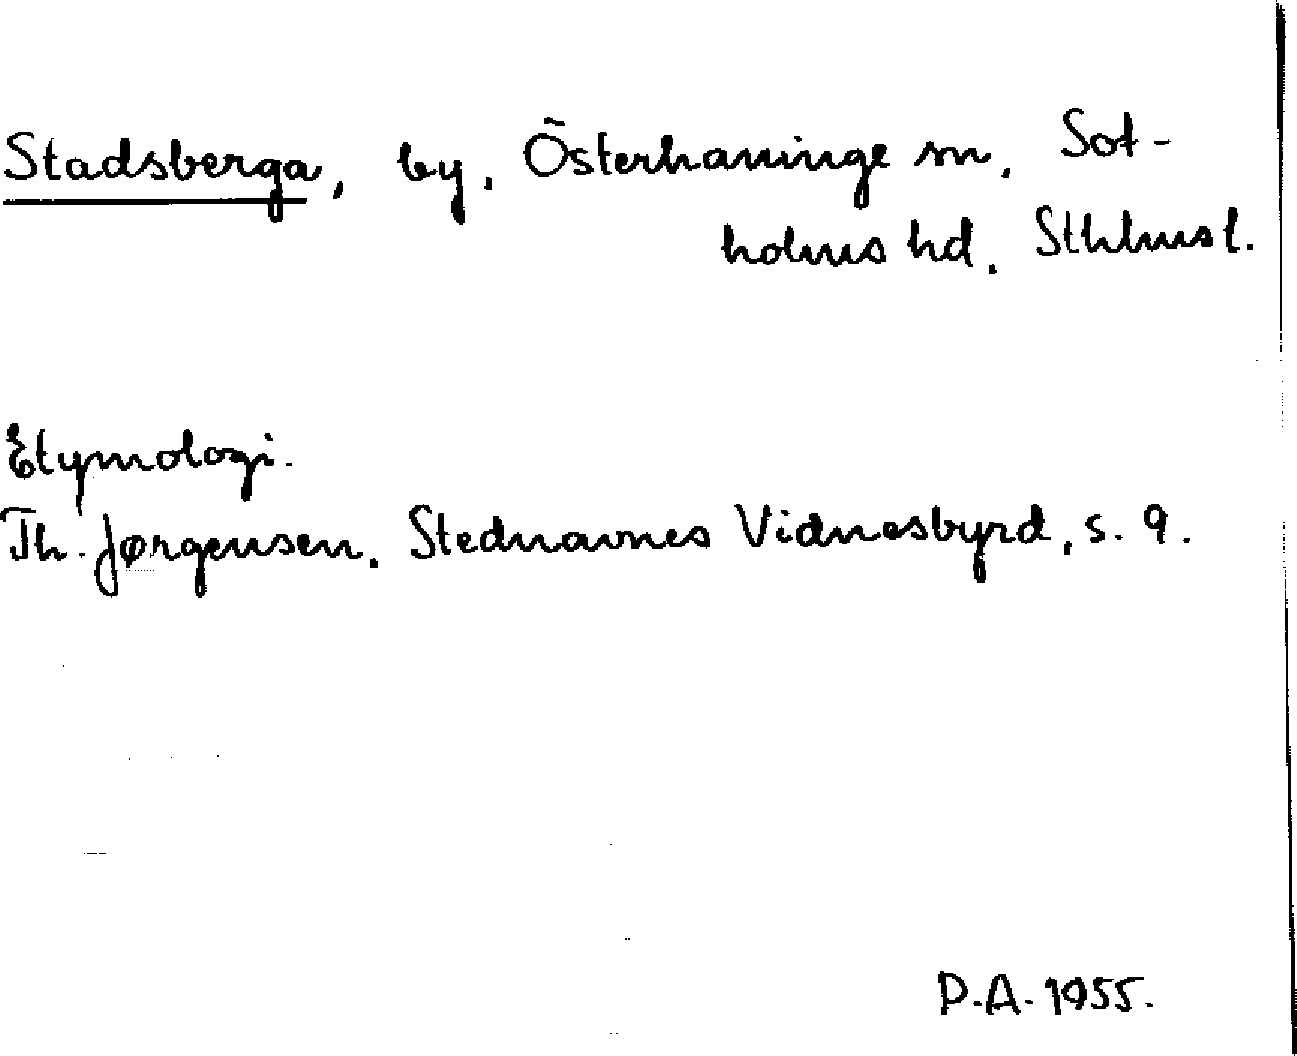 Stadsberga, by, Österhaninge sn, Sot-
holms hd, Sthlms l.
Etymologi.
Th. Jørgensen, Stednavnes Vidnesbyrd, s. 9.
P.A. 1955.